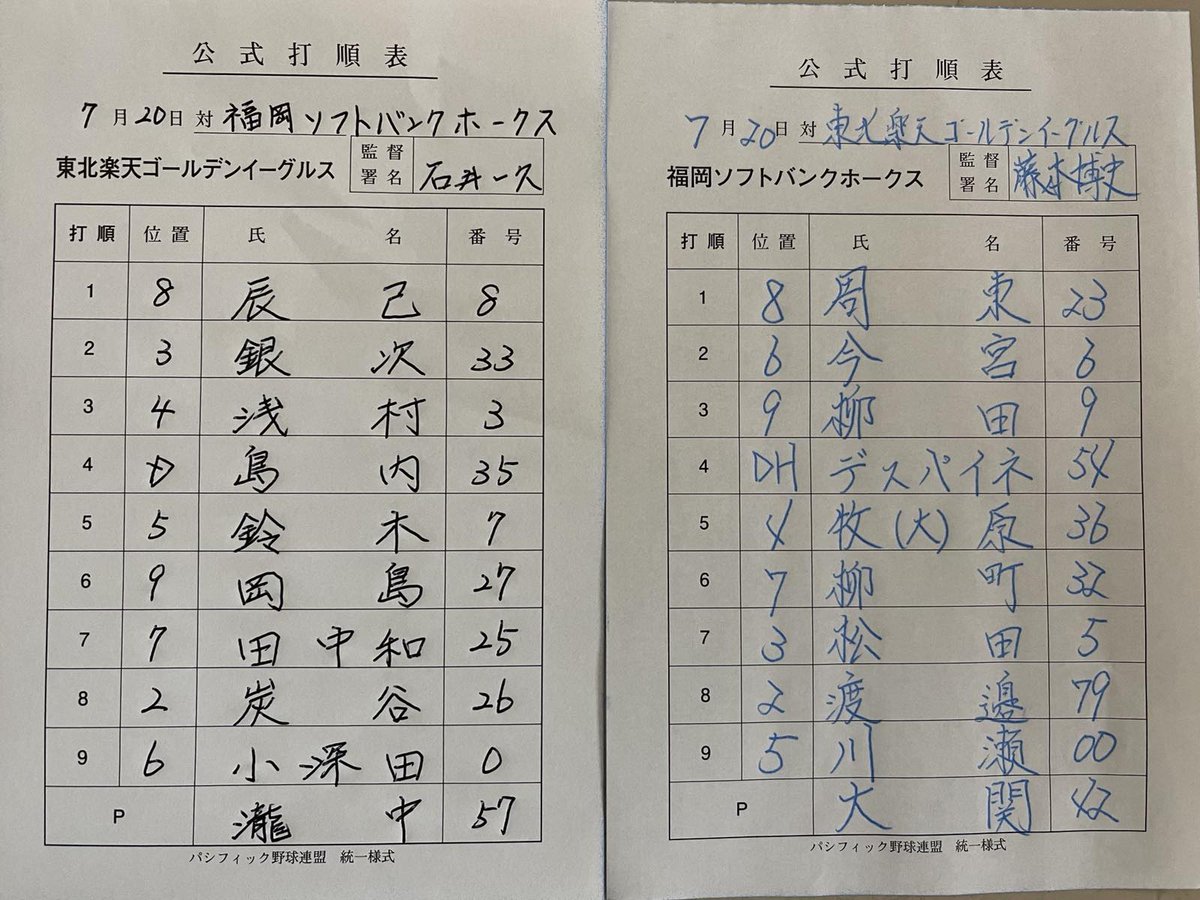 公式打順表
7月20日 対 福岡ソフトバンクホークス
東北楽天ゴールデンイーグルス 監督署名 石井一久
打順 位置 氏名 番号
1 8 辰己 8
2 3 銀次 33
3 4 浅村 3
4 D 島内 35
5 5 鈴木 7
6 9 岡島 27
7 7 田中和 25
8 2 炭谷 26
9 6 小深田 0
P 瀧中 57
パシフィック野球連盟 統一様式
公式打順表
7月20日 対 東北楽天ゴールデンイーグルス
福岡ソフトバンクホークス 監督署名 藤本博史
打順 位置 氏名 番号
1 8 周東 23
2 6 今宮 6
3 9 柳田 9
4 DH デスパイネ 54
5 4 牧(大)原 36
6 7 柳町 32
7 3 松田 5
8 2 渡邉 79
9 5 川瀬 00
P 大関 42
パシフィック野球連盟 統一様式